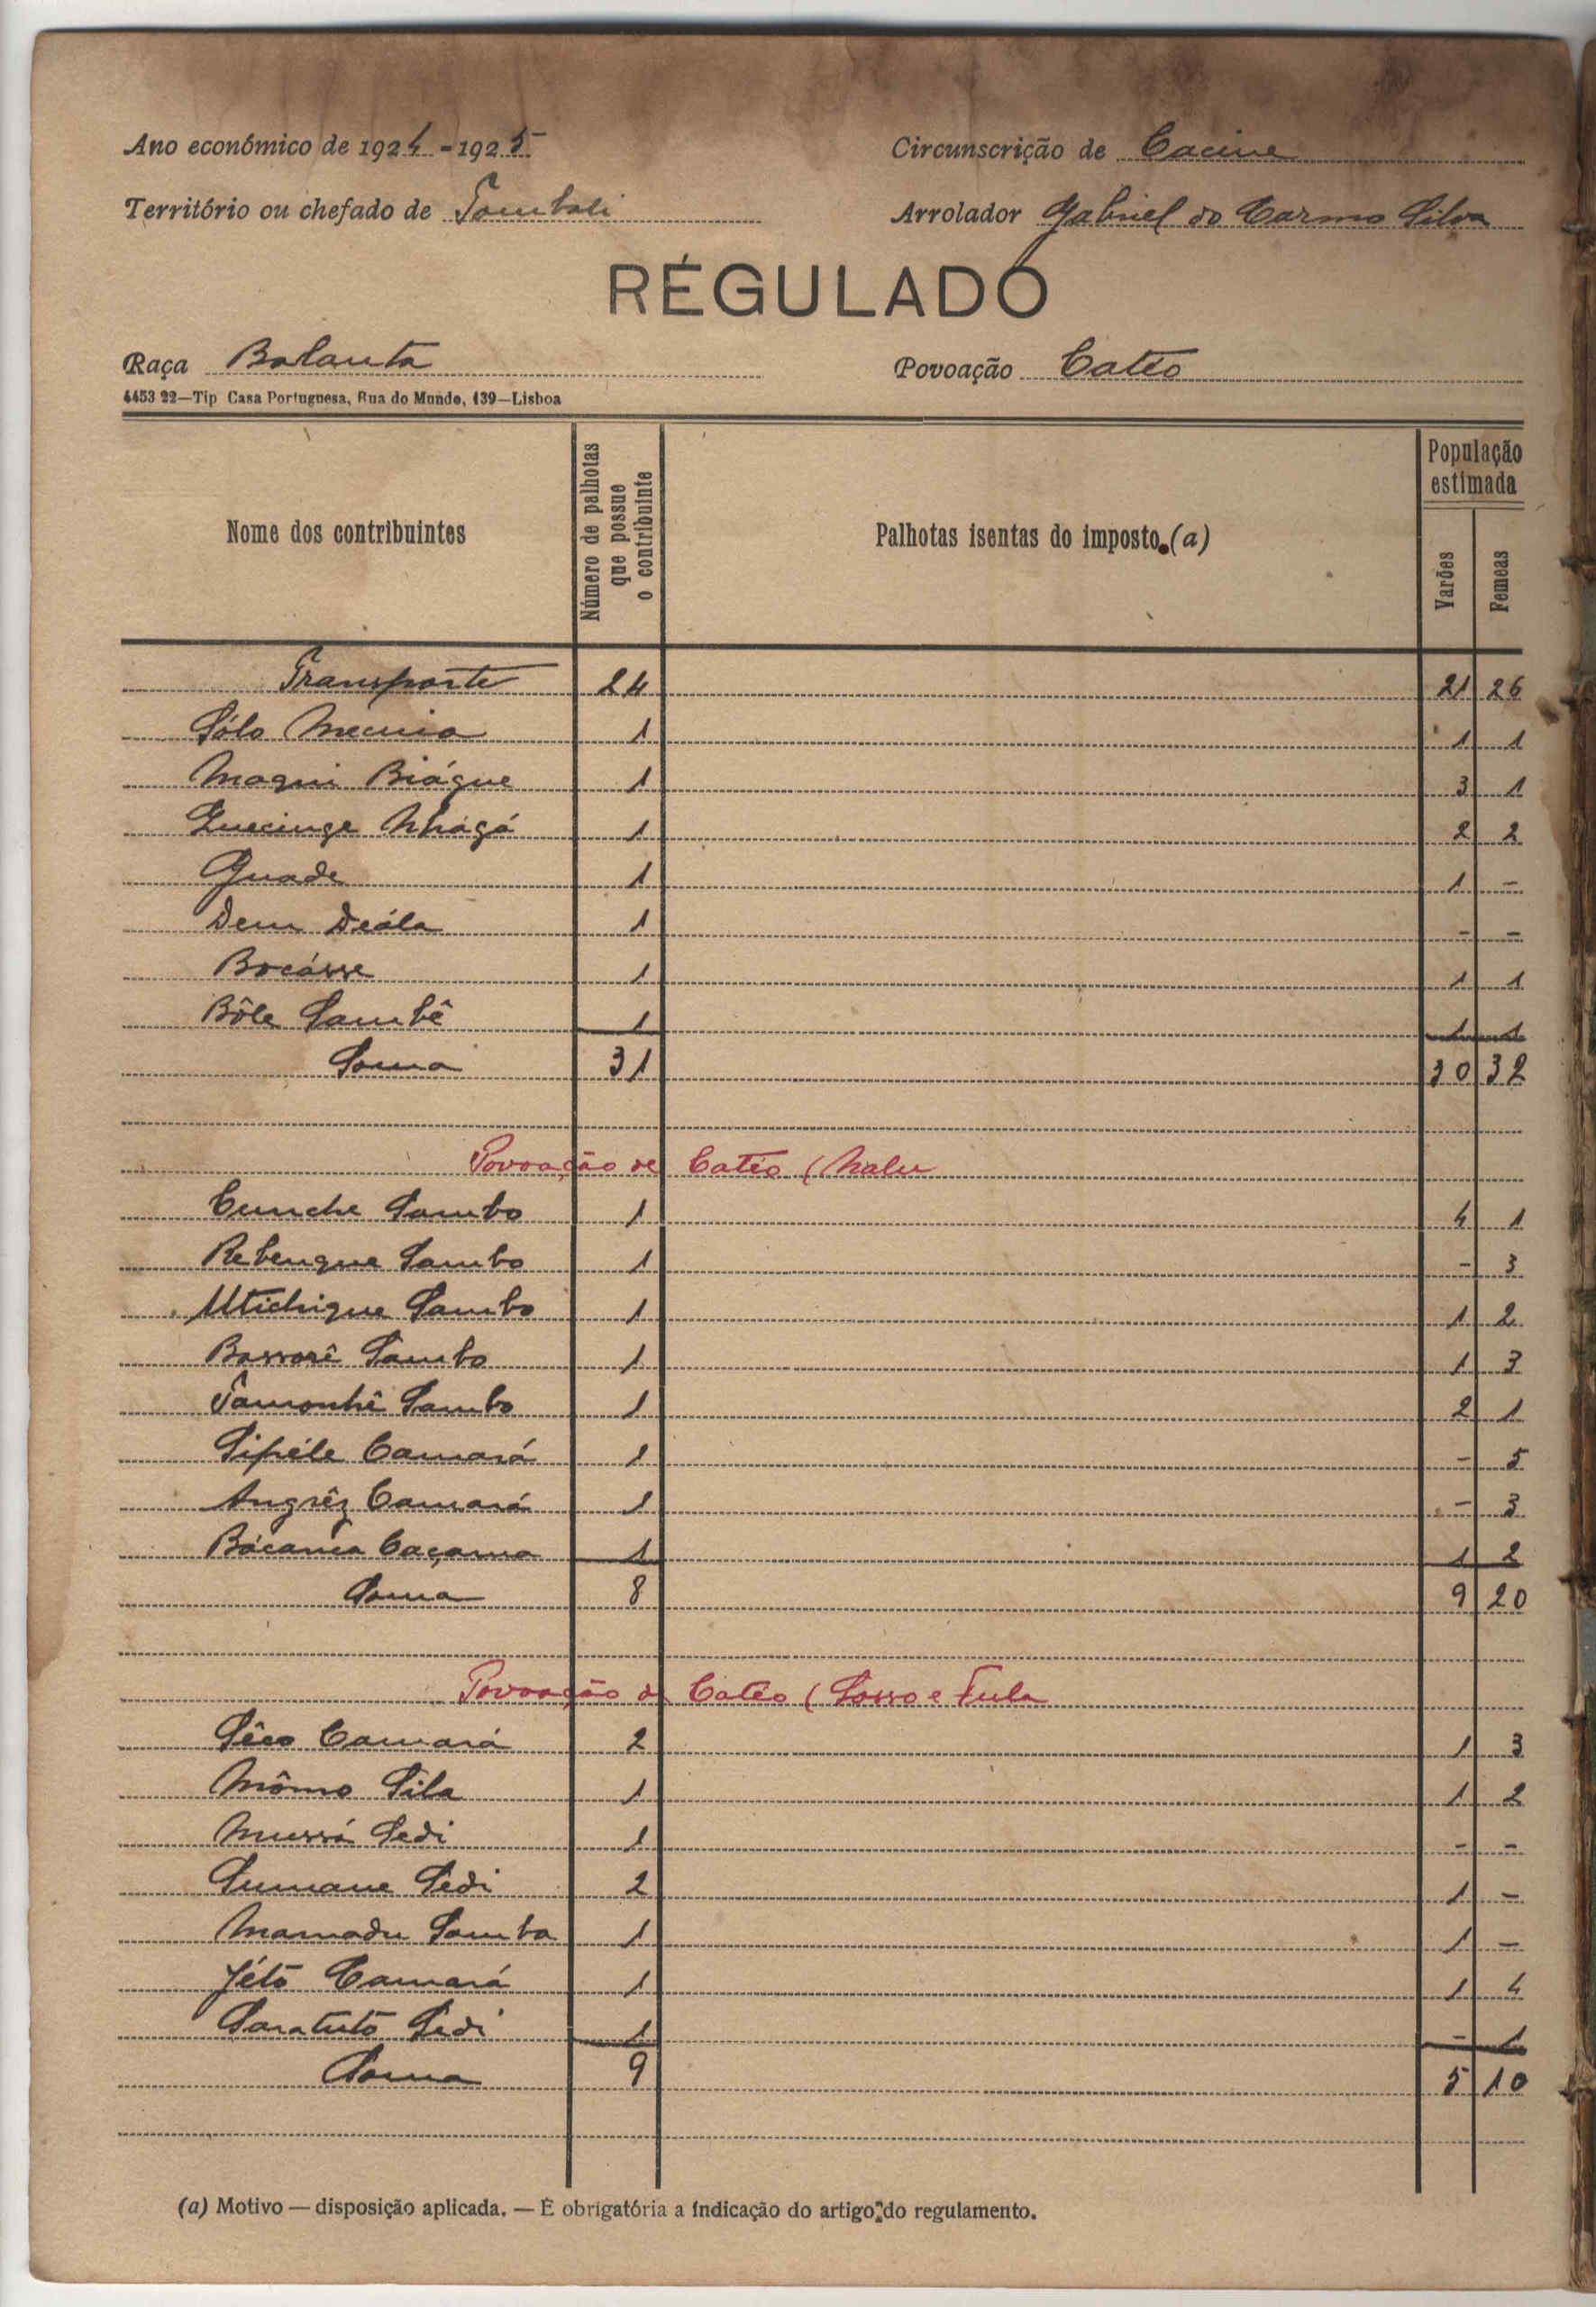 Ano económico de 1924-1925
Circunscrição de Cacine
Território ou chefado de Tombali
Arrolador Gabriel do Carmo Silva
RÉGULADO
Raça Balanta
Povoação Catéo
4453 22—Tip Casa Portuguesa, Rua do Mundo, 139—Lisboa
Nome dos contribuintes
Número de palhotas que possue o contribuinte
Palhotas isentas do imposto.(a)
População estimada
Varões
Femeas
Transporte 24 21 26
Sólo Mecnia 1 1 1
Maqui Biágue 1 3 1
Quecinge Nhágá 1 2 2
Guade 1 1 -
Dem Deála 1 - -
Bocásse 1 1 1
Bôle Sambê 1 1 1
Soma 31 30 32
Povoação de Catéo (Nalu
Cunche Sambo 1 4 1
Rebenque Sambo 1 - 3
Utichique Sambo 1 1 2
Bassorê Sambo 1 1 3
Tamonhê Sambo 1 2 1
Sipéle Camará 1 - 5
Angrêz Camará 1 - 3
Bácanca Caçama 1 1 2
Soma 8 9 20
Povoação de Catéo (Sosso e Fula
Sêco Camará 2 1 3
Mômo Sila 1 1 2
Mussá Sedi 1 - -
Sumane Sedi 2 1 -
Mamadu Samba 1 1 -
Jétô Camará 1 1 4
Saratutô Sedi 1 - 1
Soma 9 5 10
(a) Motivo — disposição aplicada. — É obrigatória a indicação do artigo do regulamento.